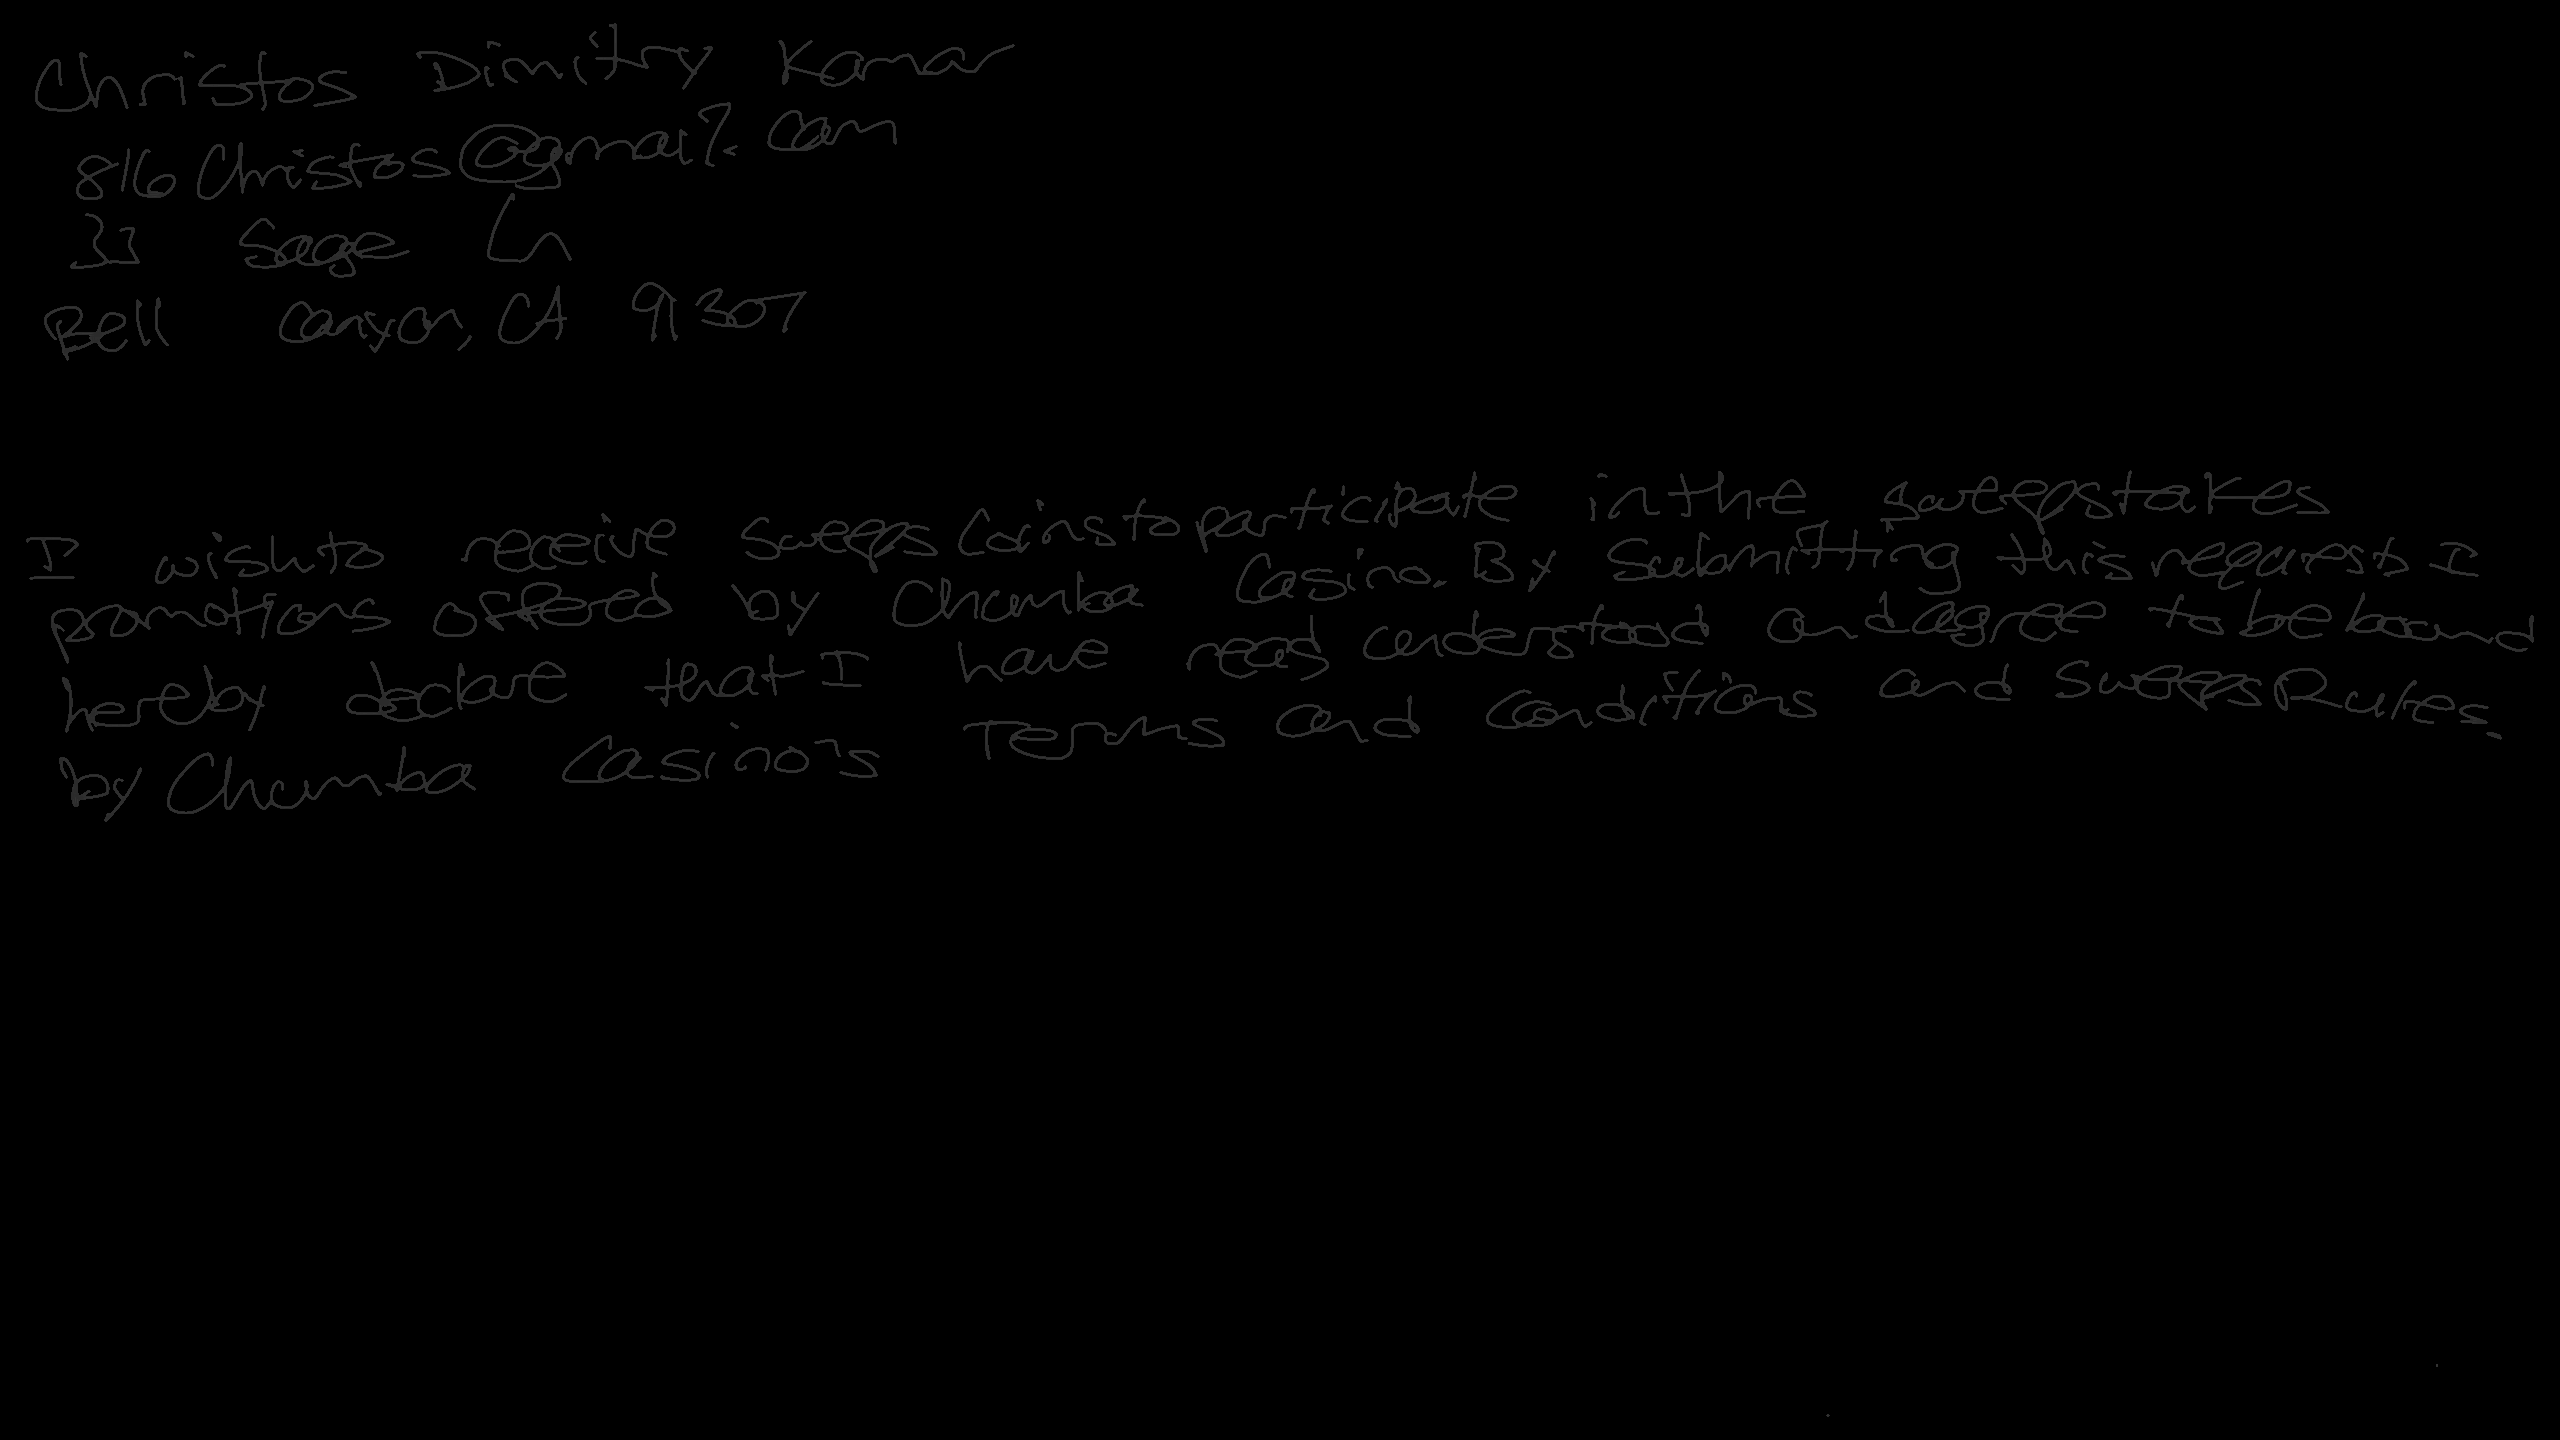 Christos Dimitry Kamar
816Christos@gmail.com
33 Sage Ln
Bell Canyon, CA 91307
I wish to receive Sweeps Coins to participate in the sweepstakes
promotions offered by Chumba Casino. By submitting this request I
hereby declare that I have read understood and agree to be bound
by Chumba Casino's Terms and Conditions and Sweeps Rules.